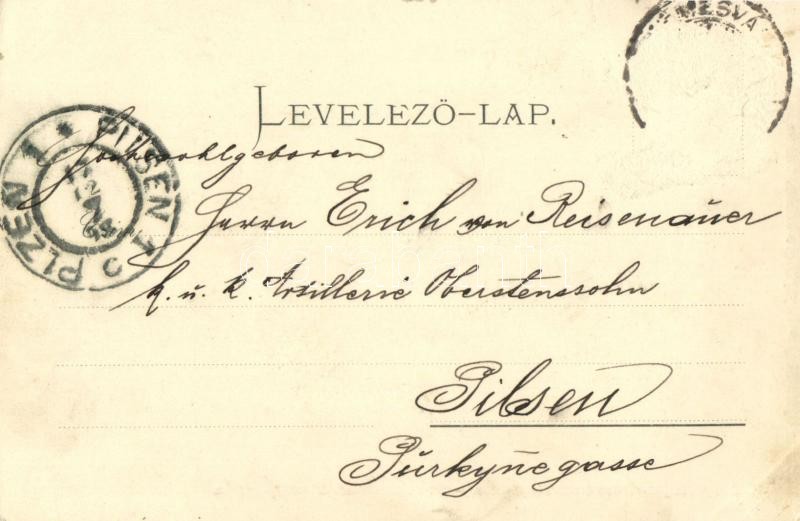 ESVA
LEVELEZŐ-LAP.
PILSEN 1 * PLZEŇ 1 *
Hochwohlgeboren
Herrn Erich von Reisenauer
k. u. k. Artillerie Oberstenssohn
Pilsen
Purkyňegasse